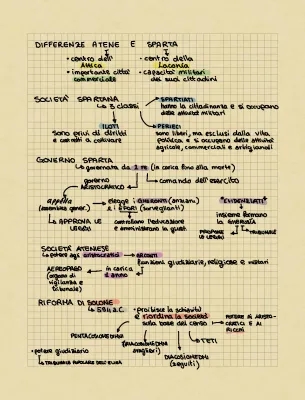 DIFFERENZE ATENE E SPARTA
• centro dell' Attica
• importante città commerciale
• centro della Laconia
• capacità militari dei suoi cittadini
SOCIETÀ SPARTANA
↳ 3 classi
SPARTIATI
hanno la cittadinanza e si occupano
delle attività militari
ILOTI
sono privi di diritti
e costretti a coltivare
PERIECI
sono liberi, ma esclusi dalla vita
politica e si occupano delle attività
agricole, commerciali e artigianali
GOVERNO SPARTA
↳ governata da 2 re (in carica fino alla morte)
governo
ARISTOCRATICO
comando dell'esercito
apella
↳ APPROVA LE
LEGGI
elegge i
i EFORI
controllano l'educazione
e amministrano la giust.
insieme formano
PROPONE LE
LEGGI
TRIBUNALE
SOCIETÀ ATENIESE
↳ potere agli aristocratici → ARCONTI
funzioni giudiziarie, religiose e militari
AEROPAGO
(organo di
vigilanza e
tribunale)
in carica
1 anno
RIFORMA DI SOLONE
↳ 594 a.C.
• proibisce la schiavitù
e riordina la società
sulla base del censo
PENTACOSIOMEDIMNI
TETI
• potere giudiziario
↳ TRIBUNALE POPOLARE DELL'ELIEA